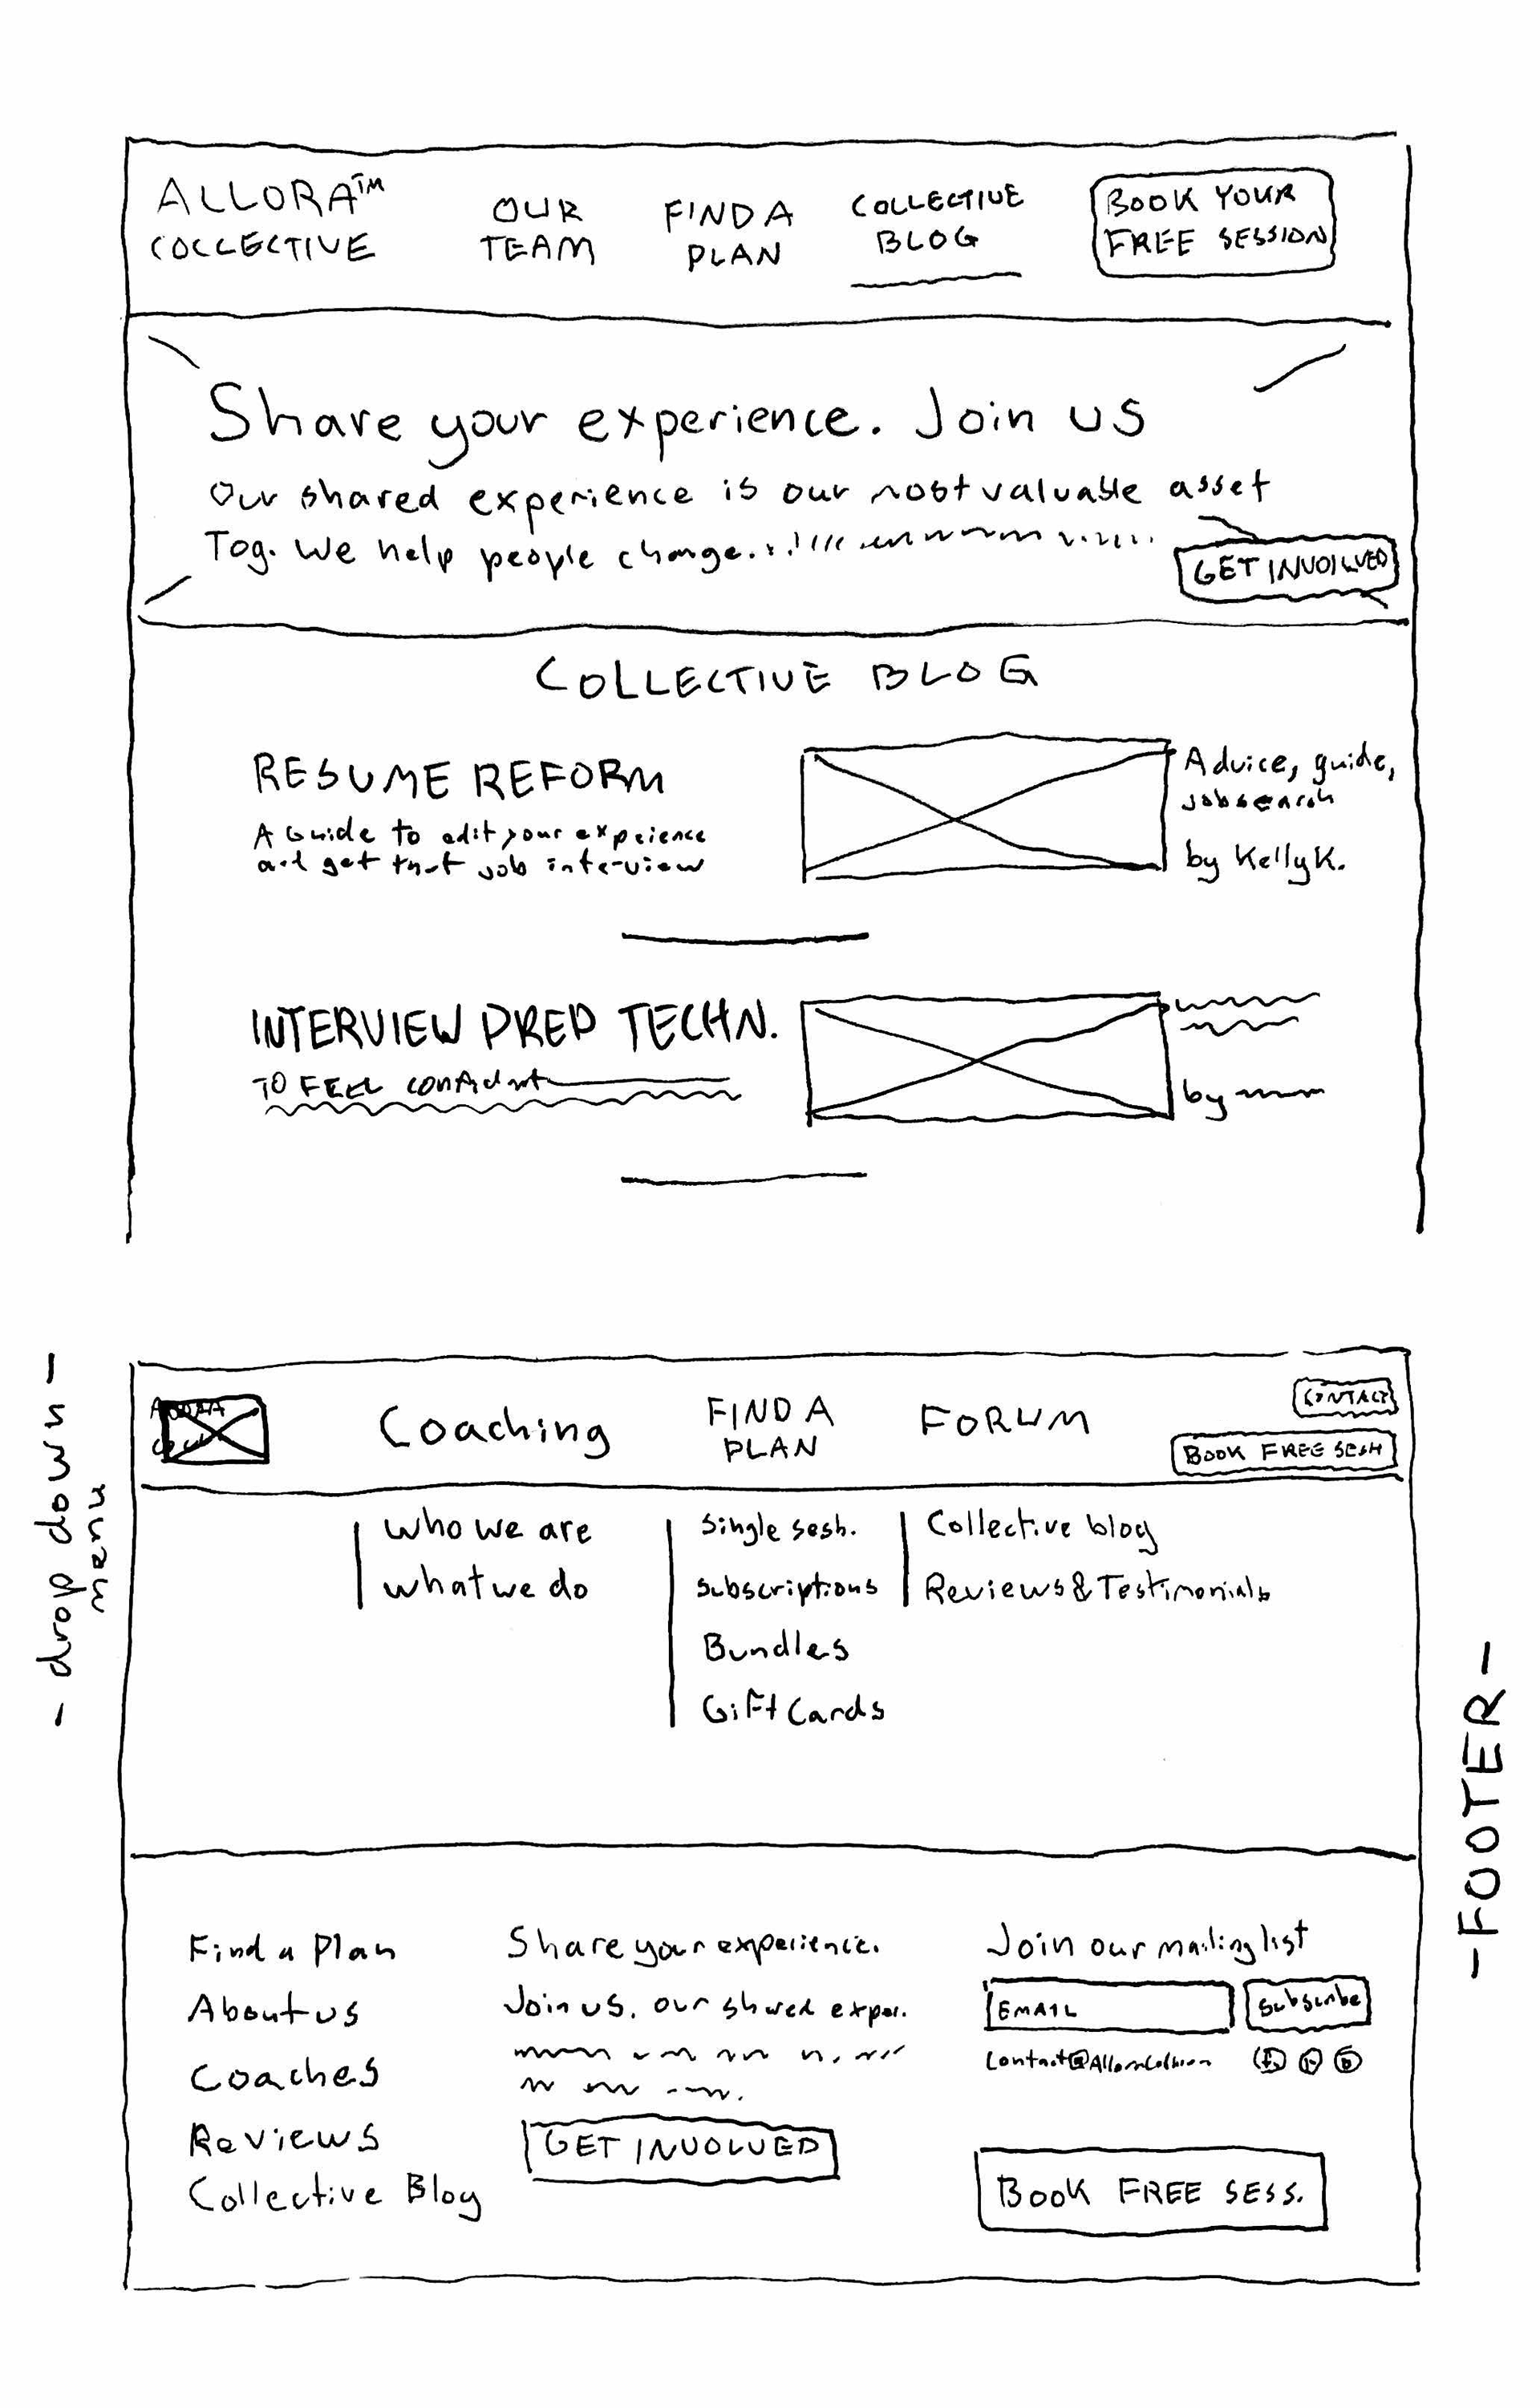 ALLORA™
COLLECTIVE
OUR
TEAM
FIND A
PLAN
COLLECTIVE
BLOG
BOOK YOUR
FREE SESSION
Share your experience. Join us
Our shared experience is our most valuable asset
Tog. We help people change...
GET INVOLVED
COLLECTIVE BLOG
RESUME REFORM
A Guide to edit your expeience
and get that job interview
Advice, guide,
jobsearch
by Kelly K.
INTERVIEW PREP TECHN.
TO FEEL confident
by
- drop down -
menu
Coaching
FIND A
PLAN
FORUM
CONTACT
BOOK FREE SESH
who we are
what we do
Single sesh.
Subscriptions
Bundles
Gift Cards
Collective blog
Reviews & Testimonials
-FOOTER-
Find a Plan
About us
Coaches
Reviews
Collective Blog
Share your experience.
Join us. our shared exper.
GET INVOLVED
Join our mailing list
EMAIL
Subscribe
BOOK FREE SESS.